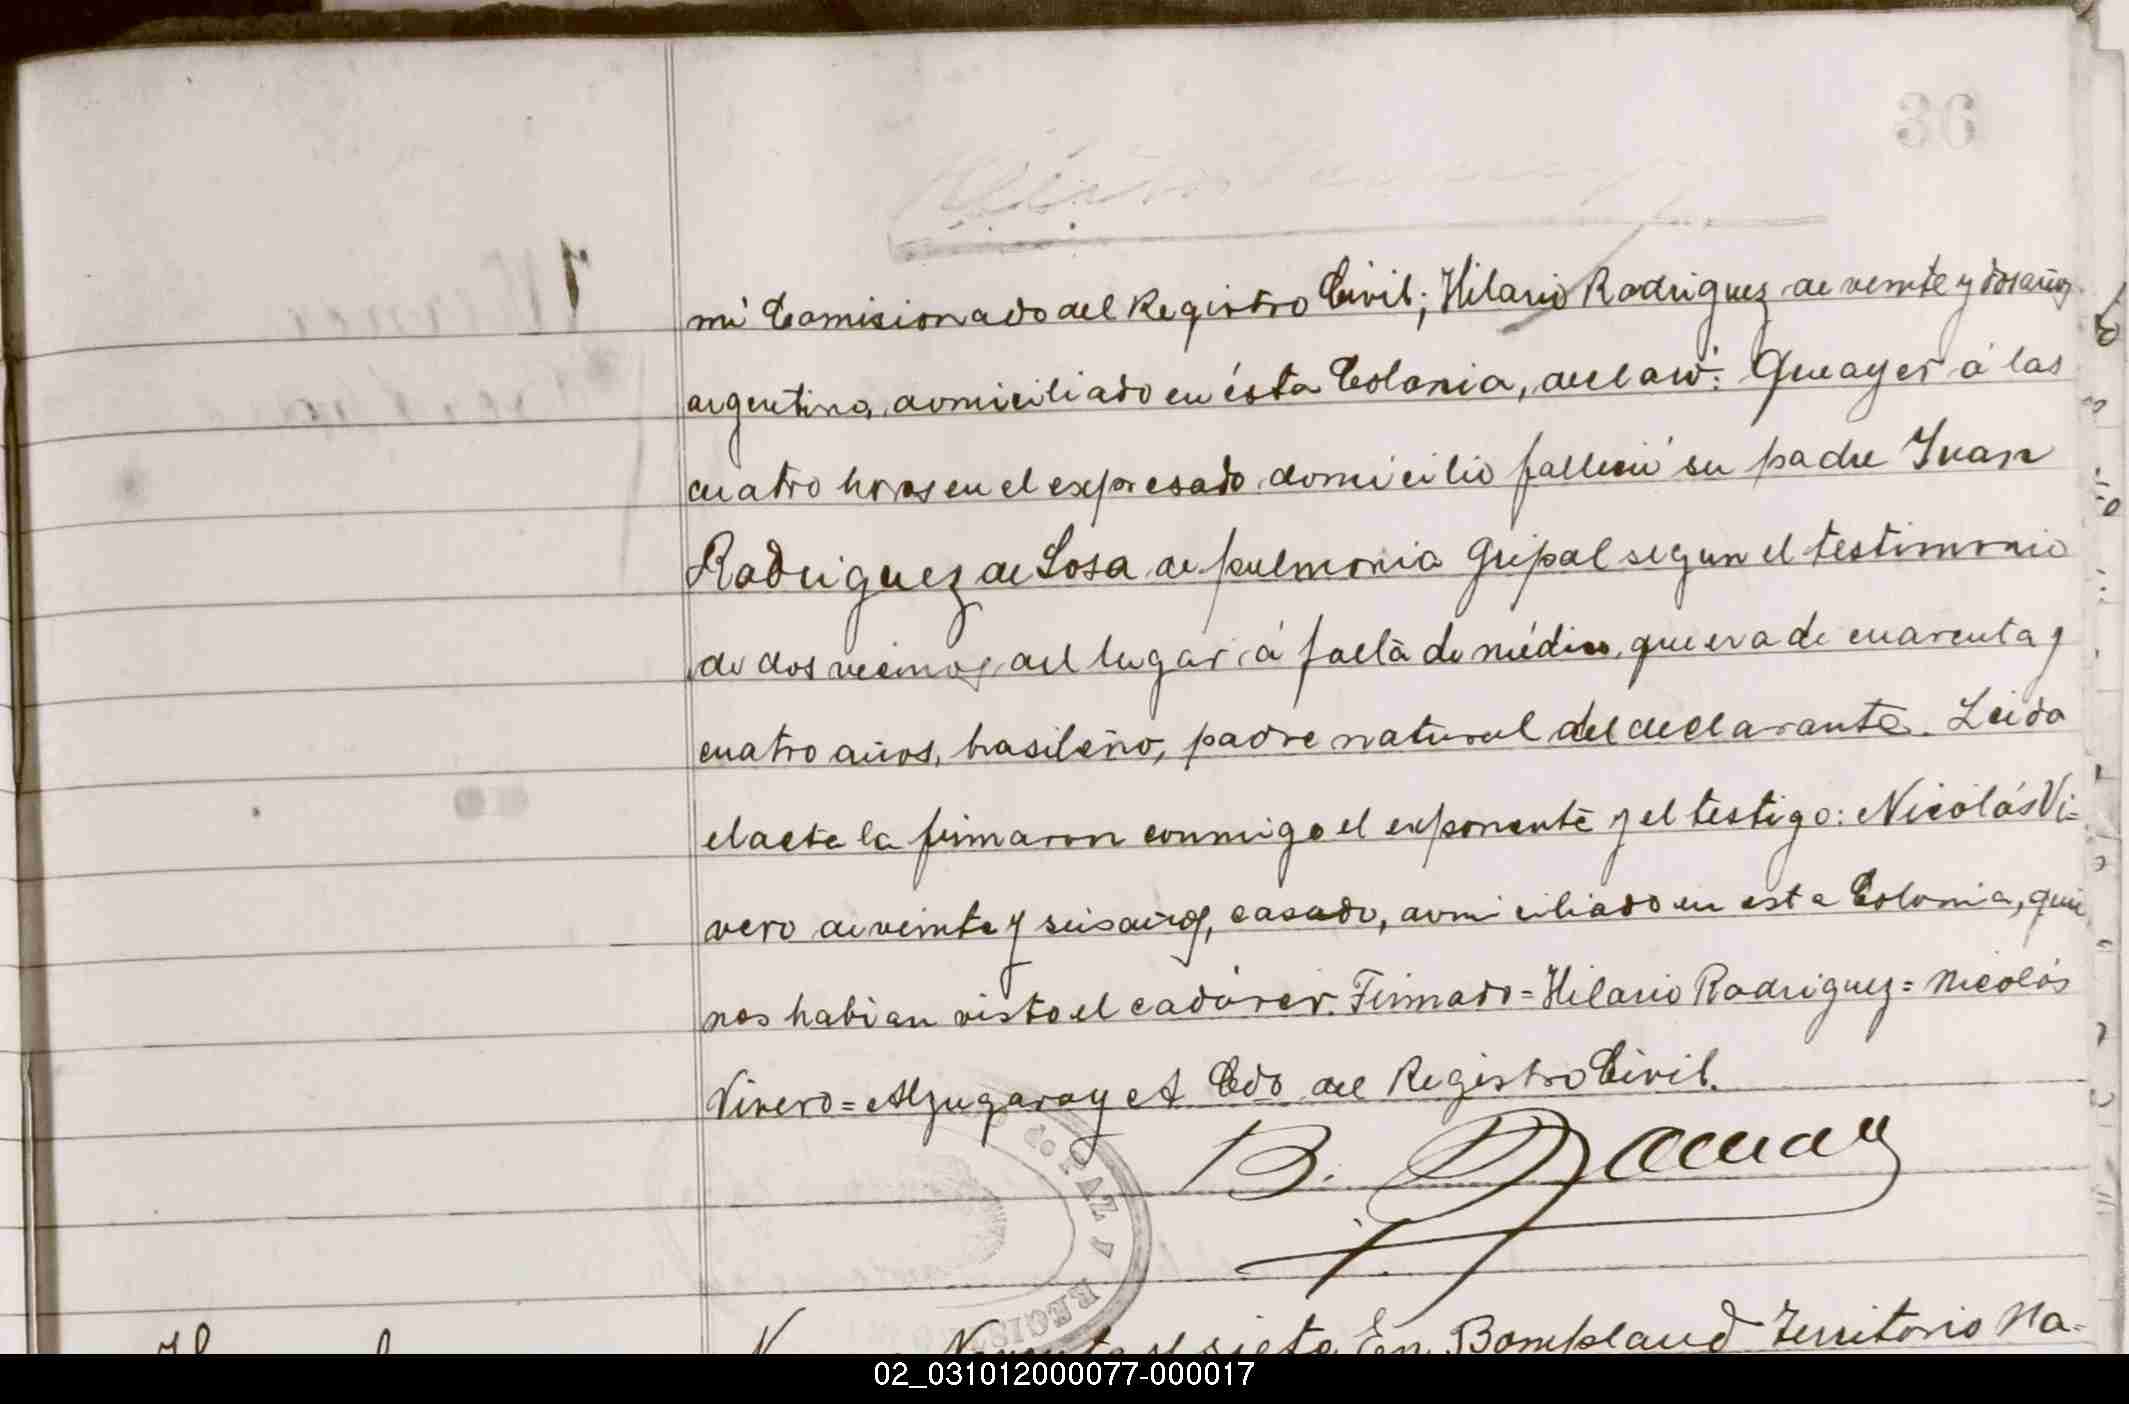 36
mi Comisionado del Registro Civil; Hilario Rodriguez de veinte y dos años
argentino, domiciliado en ésta Colonia, declaró: Que ayer á las
cuatro horas en el expresado domicilio falleció su padre Juan
Rodriguez de Sosa de pulmonia Gripal segun el testimonio
de dos vecinos del lugar á falta de médico, que era de cuarenta y
cuatro años, brasileño, padre natural del declarante. Leida
el acta la firmaron conmigo el exponente y el testigo: Nicolás Vi=
vero de veinte y seis años, casado, domiciliado en esta Colonia, quie
nes habian visto el cadáver. Firmado = Hilario Rodriguez = Nicolás
Vivero = Alzugaray A Cdo del Registro Civil.
B.
de PAZ Y REGIS
Noventa y siete En Bompland Territorio Na-
02_031012000077-000017